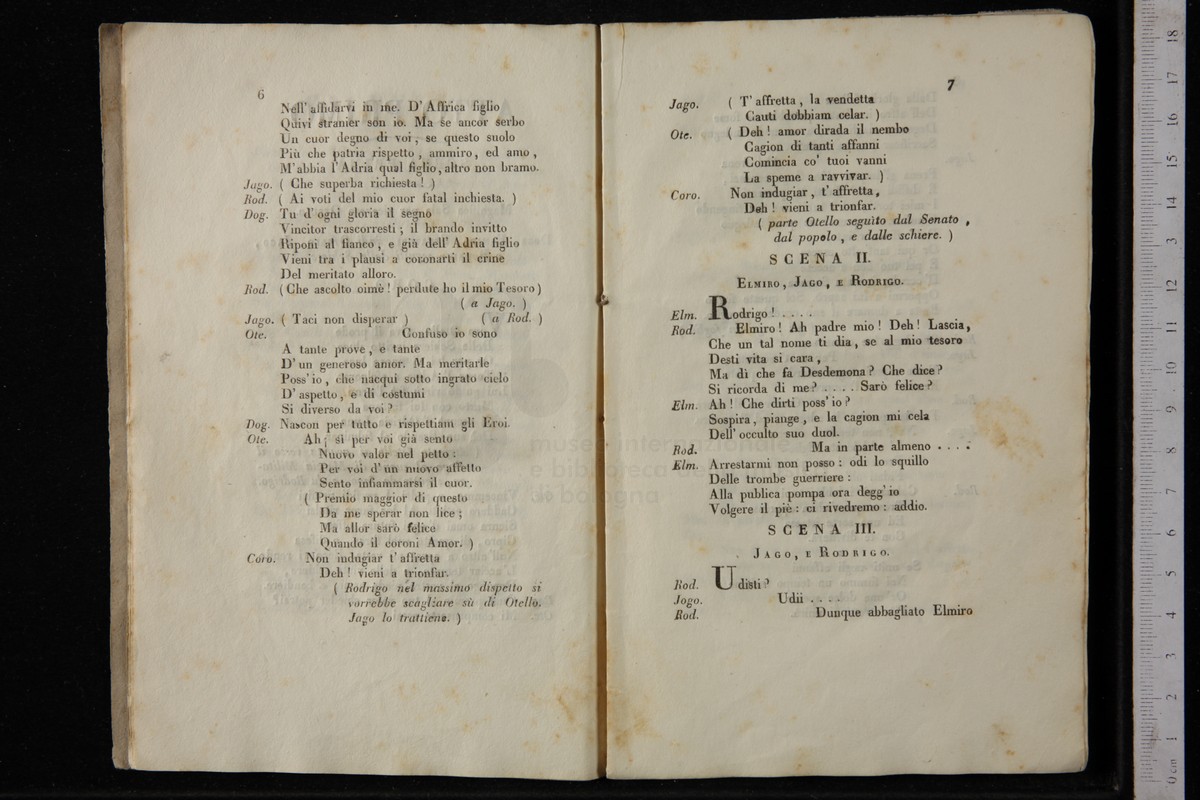 6
Nell' affidarvi in me. D' Affrica figlio
Quivi stranier son io. Ma se ancor serbo
Un cuor degno di voi, se questo suolo
Più che patria rispetto, ammiro, ed amo,
M' abbia l' Adria qual figlio, altro non bramo.
Jago. ( Che superba richiesta ! )
Rod. ( Ai voti del mio cuor fatal inchiesta. )
Dog. Tu d' ogni gloria il segno
Vincitor trascorresti ; il brando invitto
Riponi al fianco, e già dell' Adria figlio
Vieni tra i plausi a coronarti il crine
Del meritato alloro.
Rod. ( Che ascolto oimè ! perdute ho il mio Tesoro )
( a Jago. )
Jago. ( Taci non disperar ) ( a Rod. )
Ote. Confuso io sono
A tante prove, e tante
D' un generoso amor. Ma meritarle
Poss' io, che nacqui sotto ingrato cielo
D' aspetto, e di costumi
Si diverso da voi ?
Dog. Nascon per tutto e rispettiam gli Eroi.
Ote. Ah ; sì per voi già sento
Nuovo valor nel petto :
Per voi d' un nuovo affetto
Sento infiammarsi il cuor.
( Premio maggior di questo
Da me sperar non lice ;
Ma allor sarò felice
Quando il coroni Amor. )
Coro. Non indugiar t' affretta
Deh ! vieni a trionfar.
( Rodrigo nel massimo dispetto si
vorrebbe scagliare sù di Otello.
Jago lo trattiene. )
7
Jago. ( T' affretta, la vendetta
Cauti dobbiam celar. )
Ote. ( Deh ! amor dirada il nembo
Cagion di tanti affanni
Comincia co' tuoi vanni
La speme a ravvivar. )
Coro. Non indugiar, t' affretta,
Deh ! vieni a trionfar.
( parte Otello seguito dal Senato,
dal popolo, e dalle schiere. )
SCENA II.
ELMIRO, JAGO, E RODRIGO.
Elm. Rodrigo ! . . . .
Rod. Elmiro ! Ah padre mio ! Deh ! Lascia,
Che un tal nome ti dia, se al mio tesoro
Desti vita si cara,
Ma dì che fa Desdemona ? Che dice ?
Si ricorda di me ? . . . . Sarò felice ?
Elm. Ah ! Che dirti poss' io ?
Sospira, piange, e la cagion mi cela
Dell' occulto suo duol.
Rod. Ma in parte almeno . . . .
Elm. Arrestarmi non posso : odi lo squillo
Delle trombe guerriere :
Alla publica pompa ora degg' io
Volgere il piè : ci rivedremo : addio.
SCENA III.
JAGO, E RODRIGO.
Rod. Udisti ?
Jogo. Udii . . . .
Rod. Dunque abbagliato Elmiro
museo internazionale
e biblioteca
di bologna
0 cm 1 2 3 4 5 6 7 8 9 10 11 12 13 14 15 16 17 18